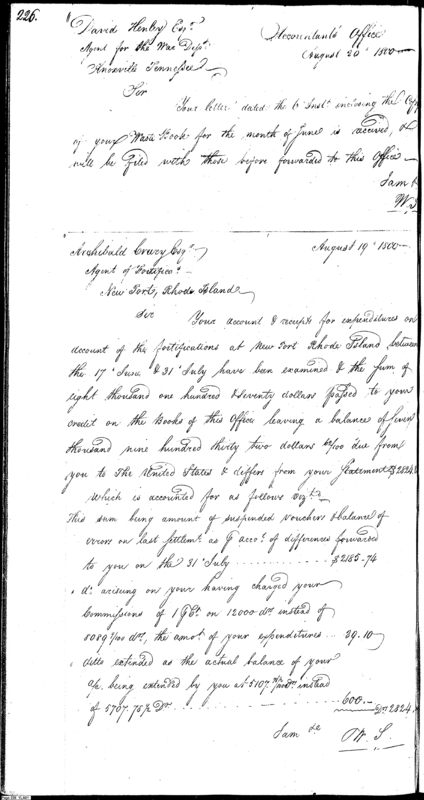 226.
David Henley Esqr.
Agent for the War Dept.
Knoxville Tennessee
Accountant's Office
August 20th 1800
Sir
Your letter dated the 6 Inst. inclosing the Copy
of your Waste Book for the month of June is received, &
will be filed with those before forwarded to this Office
I am &
W. S
Archibald Crary Esqr.
Agent of Fortifica.
New Port, Rhode Island
August 19th 1800
Sir
Your account & receipts for expenditures on
account of the fortifications at New Port Rhode Island between
the 17th June & 31st July have been examined & the sum of
eight thousand one hundred & seventy dollars passed to your
credit on the Books of this Office leaving a balance of
thousand nine hundred thirty two dollars /100 due from
you to The United States & differs from your Statement $2824
which is accounted for as follows vizt.
This sum being amount of suspended vouchers & balance of
errors on last settlemt. as acct. of differences forwarded
to you on the 31st July $2185.74
do. arising on your having charged your
Commissions of 1 Ct. on 12000 drs. instead of
8089 /100 drs, the amot. of your expenditures 39.10
ditto extended as the actual balance of your
a/c being extended by you at 5107. instead
of 5707.75½ Dr. 600.
Drs. 2824.
I am &c
W. S.